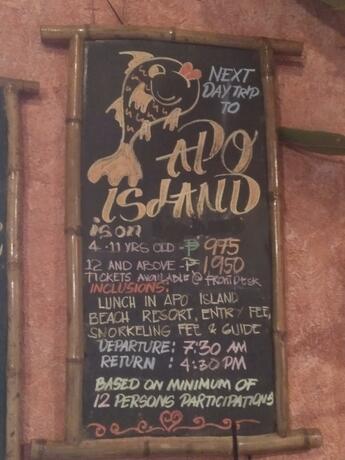 NEXT
DAY TRIP
TO
APO
ISLAND
is on
4-11 YRS OLD - ₱ 975
12 AND ABOVE - ₱ 1,950
TICKETS AVAILABLE @ FRONT DESK
INCLUSIONS:
LUNCH IN APO ISLAND
BEACH RESORT, ENTRY FEE,
SNORKELING FEE & GUIDE
DEPARTURE: 7:30 AM
RETURN : 4:30 PM
BASED ON MINIMUM OF
12 PERSONS PARTICIPATIONS